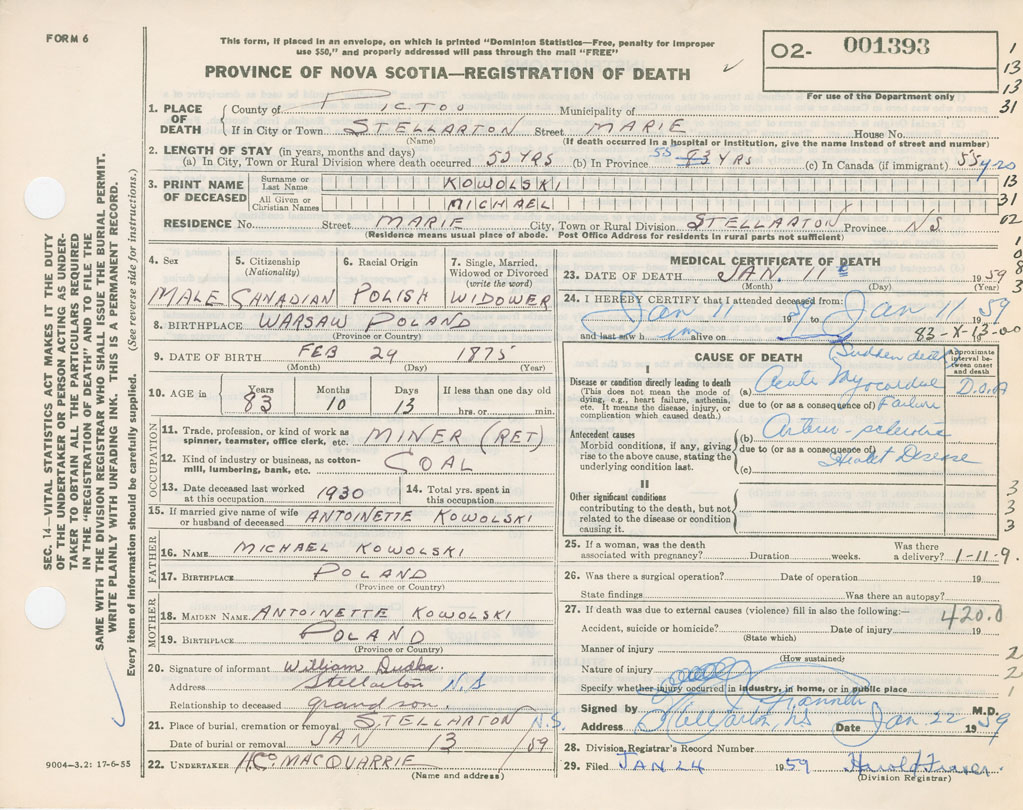 FORM 6
This form, if placed in an envelope, on which is printed "Dominion Statistics—Free, penalty for improper
use $50," and properly addressed will pass through the mail "FREE"
PROVINCE OF NOVA SCOTIA—REGISTRATION OF DEATH
O2- 001393
For use of the Department only
1
13
13
31
1. PLACE OF DEATH
County of PICTOU Municipality of
If in City or Town STELLARTON Street MARIE House No.
(Name) (If death occurred in a hospital or institution, give the name instead of street and number)
2. LENGTH OF STAY (in years, months and days)
(a) In City, Town or Rural Division where death occurred 53 YRS (b) In Province 55 83 YRS (c) In Canada (if immigrant) 55 yrs
3. PRINT NAME OF DECEASED
Surname or Last Name KOWOLSKI
13
All Given or Christian Names MICHAEL
31
RESIDENCE No. Street MARIE City, Town or Rural Division STELLARTON Province N S
02
(Residence means usual place of abode. Post Office Address for residents in rural parts not sufficient)
1
0
8
3
4. Sex MALE
5. Citizenship (Nationality) CANADIAN
6. Racial Origin POLISH
7. Single, Married, Widowed or Divorced (write the word) WIDOWER
8. BIRTHPLACE WARSAW POLAND
(Province or Country)
9. DATE OF BIRTH FEB 29 1875
(Month) (Day) (Year)
10. AGE in Years 83 Months 10 Days 13 If less than one day old hrs. or min.
OCCUPATION
11. Trade, profession, or kind of work as spinner, teamster, office clerk, etc. MINER (RET)
12. Kind of industry or business, as cotton-mill, lumbering, bank, etc. COAL
13. Date deceased last worked at this occupation 1930
14. Total yrs. spent in this occupation
15. If married give name of wife or husband of deceased ANTOINETTE KOWOLSKI
FATHER
16. NAME MICHAEL KOWOLSKI
17. BIRTHPLACE POLAND
(Province or Country)
MOTHER
18. MAIDEN NAME ANTOINETTE KOWOLSKI
19. BIRTHPLACE POLAND
(Province or Country)
20. Signature of informant William Dudka
Address Stellarton N.S
Relationship to deceased grandson
21. Place of burial, cremation or removal STELLARTON N.S.
Date of burial or removal JAN 13 /59
22. UNDERTAKER H.C. MACQUARRIE
(Name and address)
9004—3.2: 17-6-55
MEDICAL CERTIFICATE OF DEATH
23. DATE OF DEATH JAN. 11 1959
(Month) (Day) (Year)
24. I HEREBY CERTIFY that I attended deceased from:
Jan 11 1959 to Jan 11 1959
and last saw h im alive on
83-X-13-00
CAUSE OF DEATH
(Sudden death
Approximate interval between onset and death
I
Disease or condition directly leading to death
(This does not mean the mode of dying, e.g., heart failure, asthenia, etc. It means the disease, injury, or complication which caused death.)
(a) Acute Myocardial D.O.A
due to (or as a consequence of) Failure
Antecedent causes
Morbid conditions, if any, giving rise to the above cause, stating the underlying condition last.
(b) Arterio-sclerotic
due to (or as a consequence of)
(c) Heart Disease
II
Other significant conditions
contributing to the death, but not related to the disease or condition causing it.
3
3
3
25. If a woman, was the death associated with pregnancy? Duration weeks. Was there a delivery? 1-11-9.
26. Was there a surgical operation? Date of operation 19
State findings Was there an autopsy?
27. If death was due to external causes (violence) fill in also the following:— 420.0
Accident, suicide or homicide? Date of injury 19
(State which)
Manner of injury 2
(How sustained)
Nature of injury 2
Specify whether injury occurred in industry, in home, or in public place 1
Signed by M.D.
Address Stellarton, NS Date Jan. 22 1959
28. Division Registrar's Record Number
29. Filed JAN 24 1959 Harold Fraser
(Division Registrar)
SEC. 14—VITAL STATISTICS ACT MAKES IT THE DUTY
OF THE UNDERTAKER OR PERSON ACTING AS UNDER-
TAKER TO OBTAIN ALL THE PARTICULARS REQUIRED
IN THE "REGISTRATION OF DEATH" AND TO FILE THE
SAME WITH THE DIVISION REGISTRAR WHO SHALL ISSUE THE BURIAL PERMIT.
WRITE PLAINLY WITH UNFADING INK. THIS IS A PERMANENT RECORD.
Every item of information should be carefully supplied. (See reverse side for instructions.)